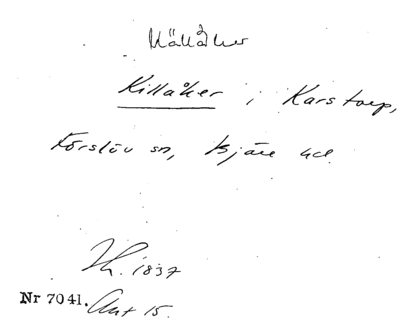 Källåker
Killåker i Karstorp,
Förslöv sn, Bjäre hd.
h. 1837
Nr 7041. Ant 15.